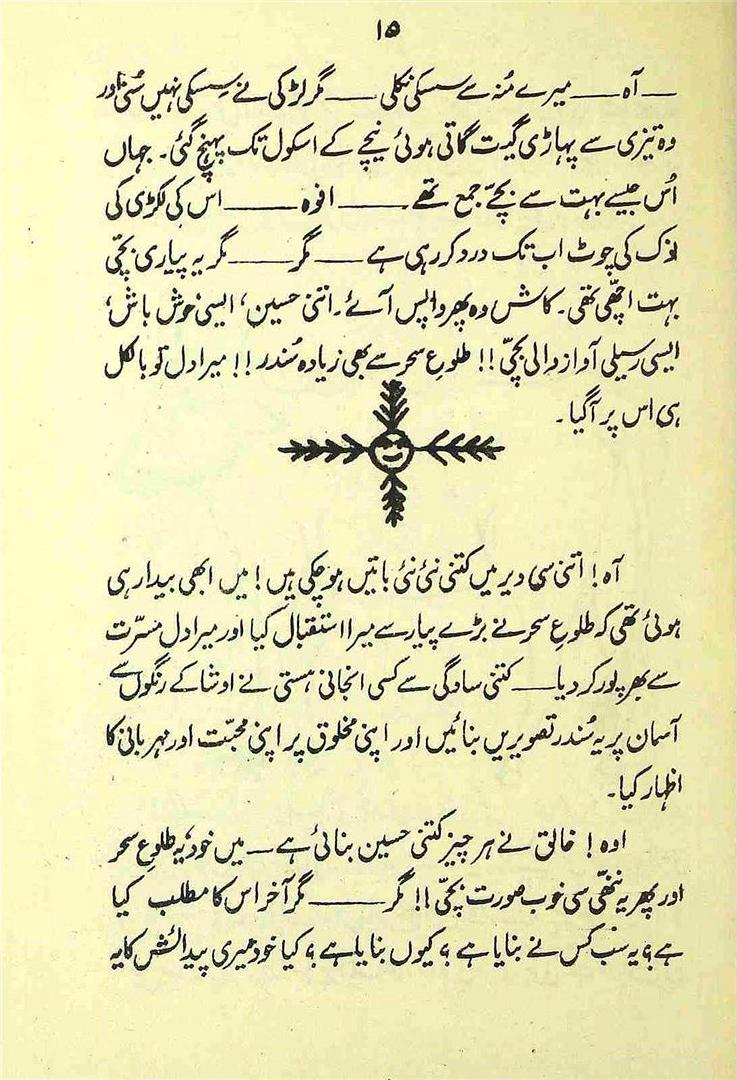 ۱۵
— آہ — میرے مُنہ سے سسکی نکلی — مگر لڑکی نے سِسکی نہیں سُنی اور
وہ تیزی سے پہاڑی گیت گاتی ہوئی نیچے کے اسکول تک پہنچ گئی۔ جہاں
اُس جیسے بہت سے بچّے جمع تھے۔ — افوہ — اس کی لکڑی کی
نوک کی چوٹ اب تک درد کر رہی ہے — مگر — مگر یہ پیاری بچّی
بہت اچھّی تھی۔ کاش وہ پھر واپس آئے۔ اتنی حسین، ایسی خوش باش،
ایسی رسیلی آواز والی بچّی!! طلوعِ سحر سے بھی زیادہ سُندر!! میرا دل تو بالکل
ہی اس پر آگیا۔
آہ! اتنی سی دیر میں کتنی نئی نئی باتیں ہوچکی ہیں! میں ابھی بیدار ہی
ہوئی تھی کہ طلوعِ سحر نے بڑے پیار سے میرا استقبال کیا اور میرا دل مسرّت
سے بھرپور کر دیا — کتنی سادگی سے کسی انجانی ہستی نے اوشا کے رنگوں سے
آسمان پر یہ سُندر تصویریں بنائیں اور اپنی مخلوق پر اپنی محبّت اور مہربانی کا
اظہار کیا۔
اوہ! خالق نے ہر چیز کتنی حسین بنائی ہے — میں خود، یہ طلوعِ سحر
اور پھر یہ ننھّی سی خوب صورت بچّی!! مگر — مگر آخر اس کا مطلب کیا
ہے؟ یہ سب کس نے بنایا ہے؟ کیوں بنایا ہے؟ کیا خود میری پیدائش کا یہ